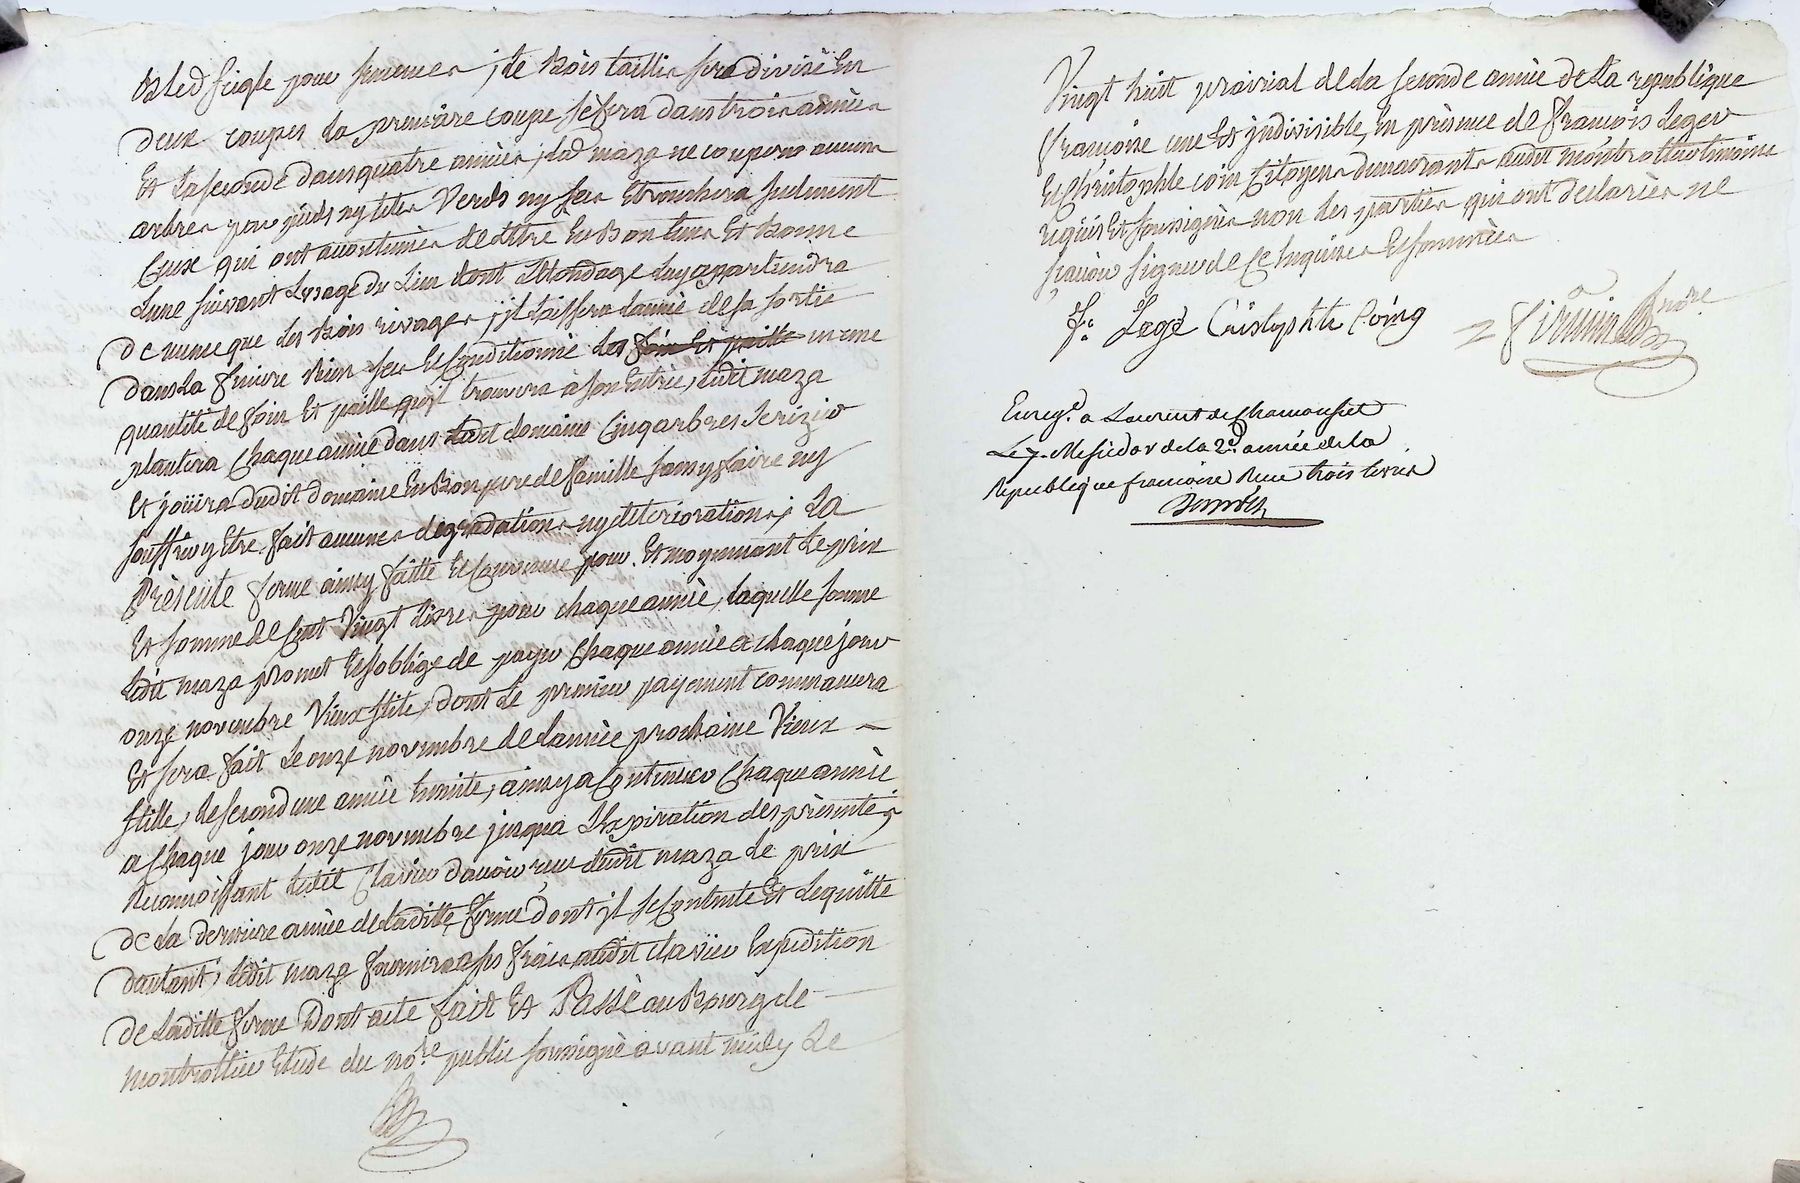 Bled seigle pour semences ; le Bois taillis sera divisé En
deux coupes la première coupe se fera dans trois années
Et la seconde dans quatre années ; led maza ne coupera aucuns
arbres par pieds ny tetes Verds ny secs Etronchera seulement
Ceux qui ont accoutumés de L'étre En Bon tems Et Bonne
Lune suivant L'usage du Lieu dont L'Elondage luy apartiendra
De meme que les Bois rivages ; jl Laissera Lannée de sa sortie
dans La feniere Bien sec Et Conditionné les foin Et paille meme
quantité de foin Et paille qu'jl trouvera à son Entrée, Ledit maza
plantera Chaque année dans Ledit domaine Cinq arbres serizier
Et joüira dudit domaine En Bon pere de famille sans y faire ny
souffrir y Etre fait aucunes dégradations ny deteriorations ; La
Présente ferme ainsy faitte Et Convenue pour Et moyennant Le prix
Et somme de Cent Vingt Livres pour chaque année, laquelle somme
Ledit maza promet Et s'oblige de payer Chaque année a chaque jour
onze novembre Vieux stile, dont Le premier payement commancera
Et sera fait Le onze novembre de Lannée prochaine Vieux
stille, le second une année ensuite, ainsy a Continuer Chaque année
a Chaque jour onze novembre jusqua LExpiration des présentes
Reconnoissant Ledit Clavier d'avoir reçu dudit maza Le prix
De La derniere année de Laditte ferme dont jl se Contente Et Le quitte
dautant ; Ledit maza fournira a ses frais audit Clavier Expedition
De Laditte ferme Dont acte fait Et Passé au Bourg de
montrottier Etude du nore public soussigné avant midy Le
Vingt huit prairial de La seconde année de La republique
françoise une Et jndivisible, En présence de François Leger
Et Christophle coin Citoyens demeurants audit montrottier temoins
requis Et soussignés non les parties qui ont declarées ne
sçavoir signer de Ce Enquises Et sommées
fs Legé Cristophle Coing
Enregé a Laurent de Chamousset
Le 7 Messidor de la 2e année de la
Republique francoise Reçu trois livres